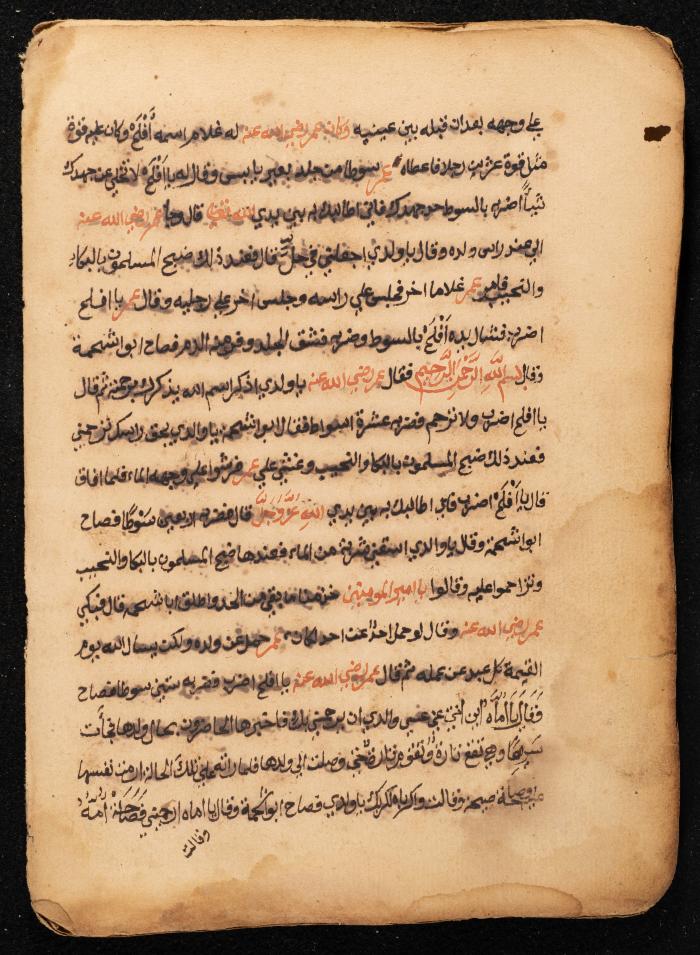 علي وجهه بعدان قبله بين عينيه وكان عمر رضي الله عنه له غلام اسمه أفلح وكان عليه قوة
مثل قوة عشرين رجلا فاعطاه عمر سوطا من جلد بعير يابس وقال له يا أفلح لا تخلي من جهدك
شيأ اضربه بالسوط حد جهدك فاني اطالبك به بين يدي الله تعالى قال وجا عمر رضي الله عنه
الي عند راس ولده وقال يا ولدي اجعلني في حل قال فعند ذلك ضج المسلمون بالبكاء
والنحيب فامر عمر غلاما اخر فجلس علي راسه وجلس اخر علي رجليه وقال عمر يا افلح
اضربه فشال يده أفلح بالسوط وضربه فشق الجلد وفر منه الدم فصاح ابوا شحمة
وقال بسم الله الرحمن الرحيم فقال عمر رضي الله عنه يا ولدي اذكر اسم الله يذكرك برحمته ثم قال
يا افلح اضرب ولا ترحم فضربه عشرة اسواط فقال ابوا شحمه يا والدي بحق راسك ترحمني
فعند ذلك ضج المسلمون بالبكا والنحيب وغشي علي عمر فرشوا علي وجهه الماء فلما افاق
قال يا أفلح اضرب فاني اطالبك به بين يدي الله عز وجل قال فضربه اربعين سوطا فصاح
ابوا شحمة وقال يا والدي اسقيني شربة من الماء فعندها ضج المسلمون بالبكا والنحيب
وتزاحموا عليه وقالوا يا امير المومنين ما بقي من الحد واطلق ابا شحمه قال فبكي
عمر رضي الله عنه وقال لو حمل احدا عن احد لكان عمر حمل عن ولده ولكن يسال الله يوم
القيمة كل عبد عن عمله ثم قال عمر رضي الله عنه يا افلح اضرب فضربه ستين سوطا فصاح
وقال يا اماه ابن انتي عسي والدي ان يرحمني بك فاخبرها الحاضرون بحال ولدها فأتت
سريعا وهي تقع تارة وتقوم تارة حتي وصلت الي ولدها فلما راته علي تلك الحالة
صيحة وقالت واكرباه لكربك يا ولدي فصاح ابوا شحمة وقال يا اماه ارحميني امه
وقالت